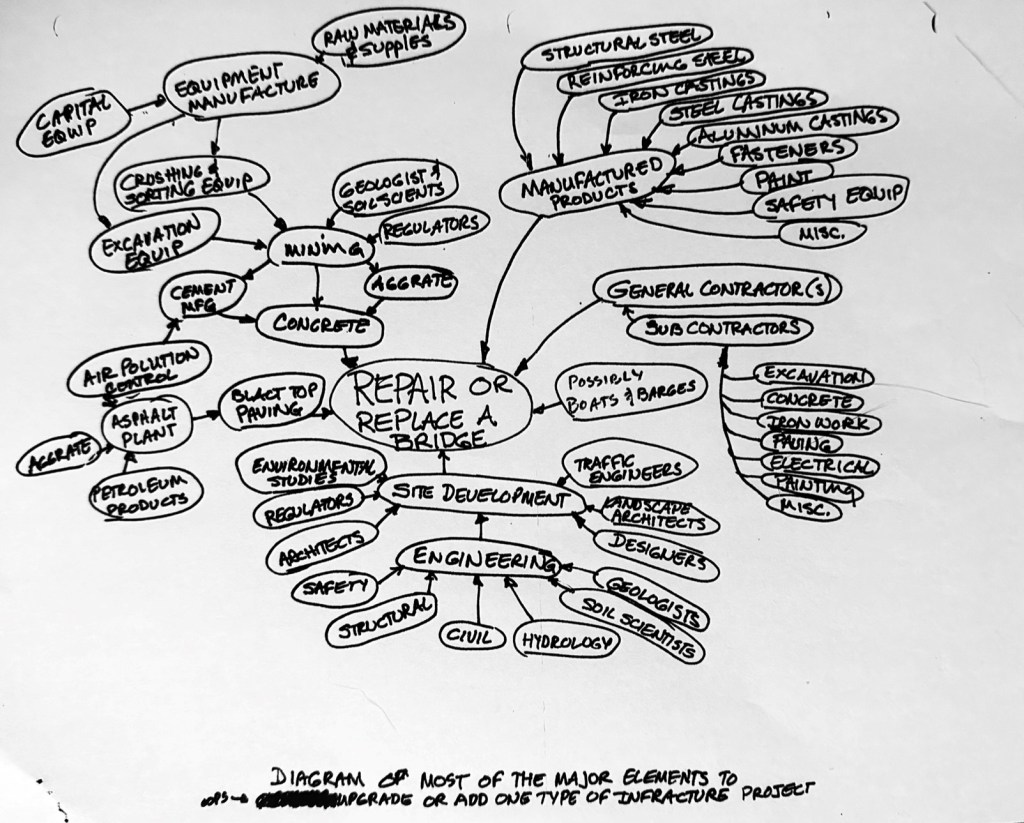 RAW MATERIALS
& SUPPLIES
EQUIPMENT
MANUFACTURE
CAPITAL
EQUIP
CRUSHING &
SORTING EQUIP
EXCAVATION
EQUIP
GEOLOGIST &
SOIL SCIENTS
REGULATORS
MINING
AGGRATE
CEMENT
MFG
CONCRETE
AIR POLUTION
CONTROL
ASPHALT
PLANT
AGGRATE
PETROLEUM
PRODUCTS
BLACT TOP
PAVING
STRUCTURAL STEEL
REINFORCING STEEL
IRON CASTINGS
STEEL CASTINGS
ALUMINUM CASTINGS
FASTENERS
PAINT
SAFETY EQUIP
MISC.
MANUFACTURED
PRODUCTS
GENERAL CONTRACTOR(S)
SUB CONTRACTORS
EXCAVATION
CONCRETE
IRON WORK
PAVING
ELECTRICAL
PAINTING
MISC.
POSSIBLY
BOATS & BARGES
REPAIR OR
REPLACE A
BRIDGE
ENVIRONMENTAL
STUDIES
REGULATORS
ARCHITECTS
SITE DEVELOPMENT
TRAFFIC
ENGINEERS
LANDSCAPE
ARCHITECTS
DESIGNERS
ENGINEERING
SAFETY
STRUCTURAL
CIVIL
HYDROLOGY
GEOLOGISTS
SOIL SCIENTISTS
DIAGRAM OF MOST OF THE MAJOR ELEMENTS TO
OOPS → UPGRADE OR ADD ONE TYPE OF INFRACTURE PROJECT